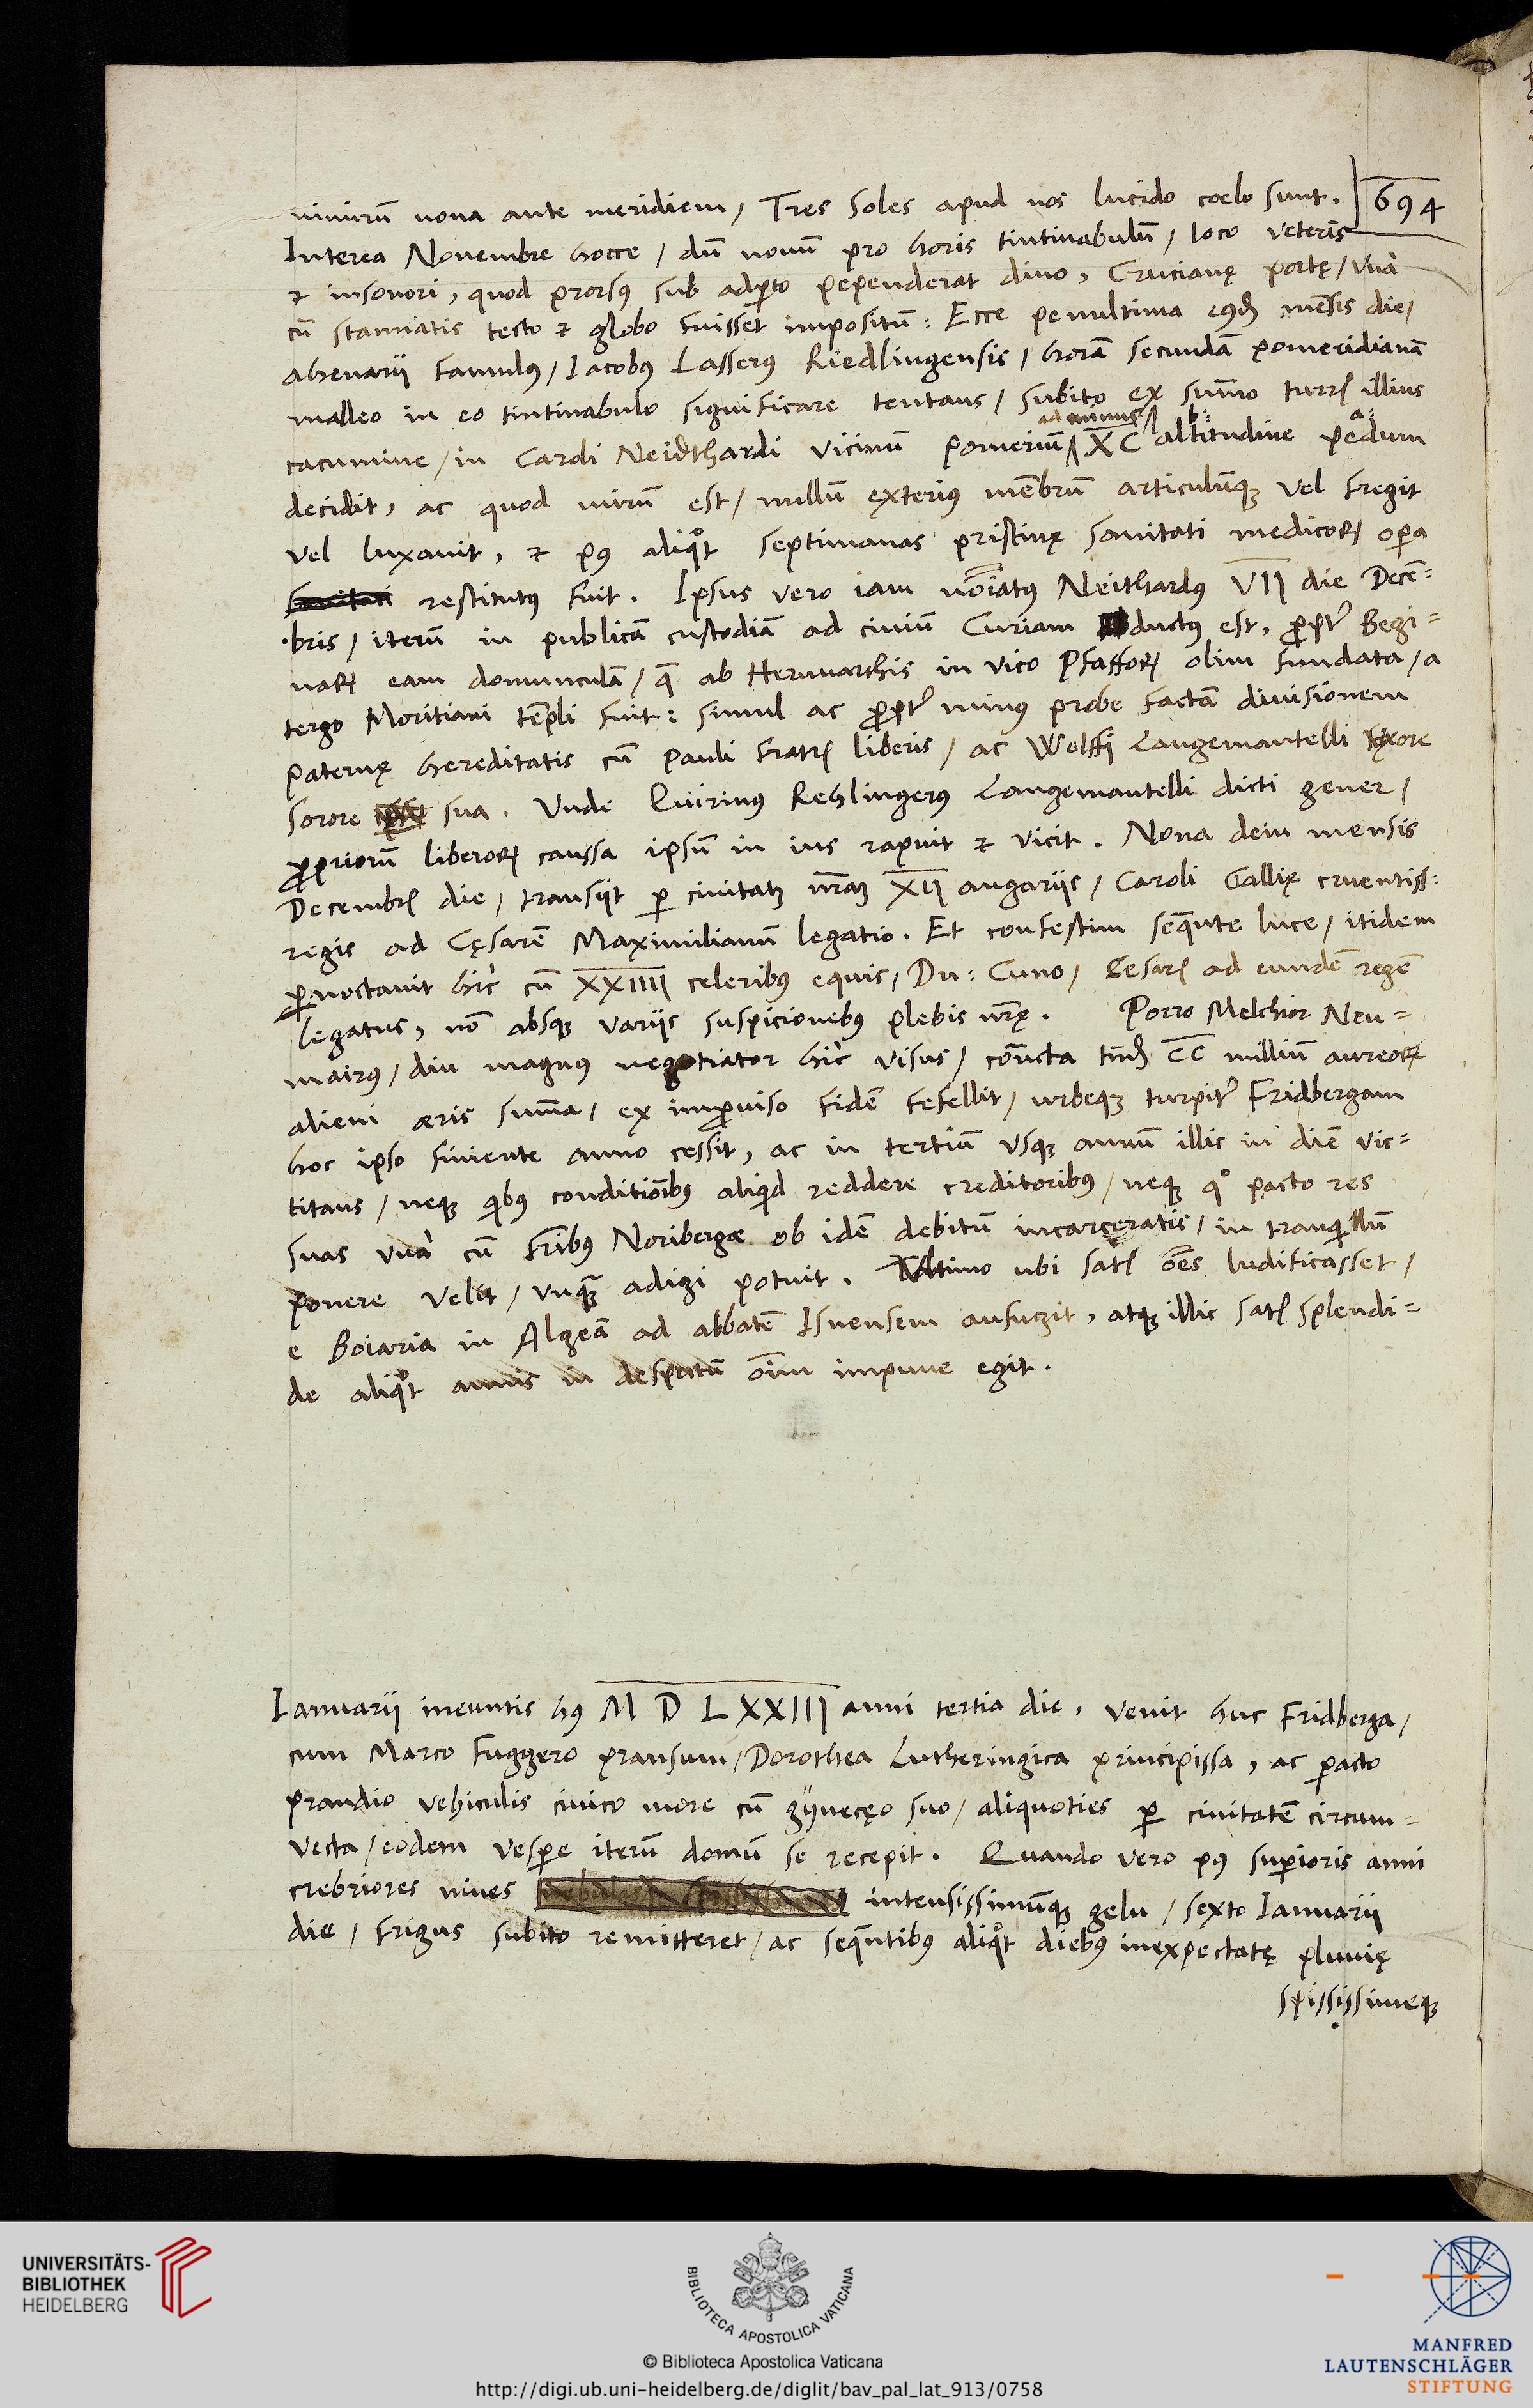 694
nimirū nona ante meridiem, Tres Soles apud nos lucido coelo sunt.
Interea Novembre hocce, dū nouū pro horis tintinabulū, loco veteris
& insonori, quod prorsꝰ sub adꝑto pependerat diuo, Crucianę portę, vnà
cū stanniatis testo & globo fuisset impositū: Ecce penultima eꝰdē mēsis die,
ahenarii famulꝰ, Iacobꝰ Lasserꝰ Riedlingensis, horā secundā pomeridianā
malleo in eo tintinabulo significare tentans, subito ex sum̄o turrꝭ illius
ad minus b: a:
cacumine, in Caroli Neidthardi vicinū pomeriū XC altitudine pedum
decidit, ac quod mirū est, nullū exteriꝰ mēbrū articulūqꝫ vel fregit
vel luxauit, & pꝰ aliqͦt septimanas pristinę sanitati medicoꝝ oꝑa
sanitati restitutꝰ fuit. Ipsus vero iam noīatꝰ Neithardꝰ VII die Decē=
bris, iterū in publicā custodiā ad ciuiū Curiam ductꝰ est, ꝓpt̄ Begi=
naꝝ eam domunculā, q̄ ab Herwarthis in vico Pfaffoꝝ olim fundata, a
tergo Moritiani tēpli fuit: simul ac ꝓpt̄ minꝰ probe factā diuisionem
paternę hereditatis cū Pauli fratrꝭ liberis, ac Wolffi Langemantelli uxore
sorore sua. Vnde Quirinꝰ Rehlingerꝰ Langemantelli dicti gener,
ꝓpriorū liberoꝝ caussa ipsū in ius rapuit & vicit. Nona dein mensis
Decembrꝭ die, transiit ꝑ ciuitatē nr̄aꝫ XII angariis, Caroli Gallię cruentiss:
regis ad Cęsarē Maximilianū legatio. Et confestim seq̄nte luce, itidem
ꝑnoctauit hîc cū XXIIII celeribus equis, Dn: Cuno, Cesarꝭ ad eundē regē
legatus, nō absqꝫ variis suspicionebus plebis nr̄ę. Porro Melchior Neu=
mairꝰ, diu magnus negotiator hîc visus, cōuncta tn̄dē CC milliū aureoꝝ
alieni aeris sum̄a, ex imꝓuiso fidē fefellit, urbeqꝫ turpit̄ Fridbergam
hoc ipso finiente anno cessit, ac in tertiū vsqꝫ annū illic in diē vic=
titans, neqꝫ qibꝰ conditiōibꝰ aliqid reddere creditoribus, neqꝫ qͦ pacto res
suas vnà cū fr̄ibus Noribergae ob idē debitū incarceratis, in tranqillū
ponere velit, vnqꝫ adigi potuit. Vltimo ubi satꝭ oēs ludificasset,
e Boiaria in Algeā ad abbatē Isnensem aufugit, atqꝫ illic satꝭ splendi=
de aliqͦt annis in despectū oīm impune egit.
Ianuarii ineuntis hꝰ M D LXXIII anni tertia die, venit huc Fridberga,
cum Marco Fuggero pransum, Dorothea Lutheringica principissa, ac ꝑacto
prandio vehiculis ciuico more cū gynecęo suo, aliquoties ꝑ ciuitatē circum=
vecta, eodem vesꝑe iterū domū se recepit. Quando vero pꝰ suꝑioris anni
crebriores niues intensissimūqꝫ gelu, sexto Ianuarii
die, frigus subito remitteret, ac seq̄ntibus aliqͦt diebꝰ inexpectatę pluuię
spississimeqꝫ
UNIVERSITÄTS-
BIBLIOTHEK
HEIDELBERG
BIBLIOTECA APOSTOLICA VATICANA
© Biblioteca Apostolica Vaticana
http://digi.ub.uni-heidelberg.de/diglit/bav_pal_lat_913/0758
MANFRED
LAUTENSCHLÄGER
STIFTUNG